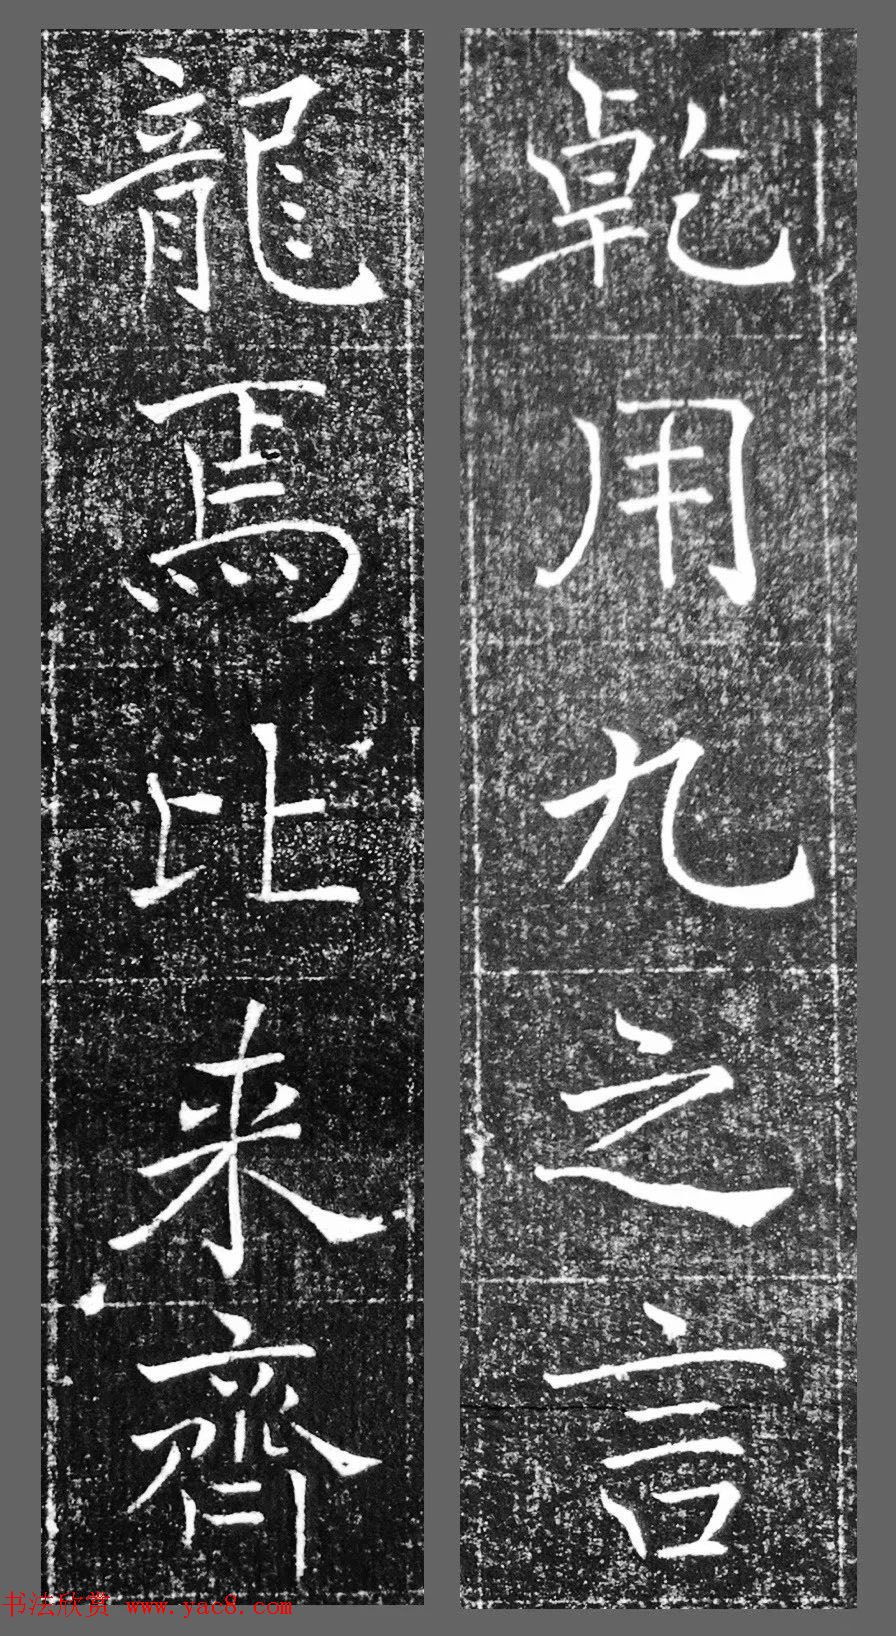 乾用九之言
龍焉比来齊
书法欣赏 www.yac8.com